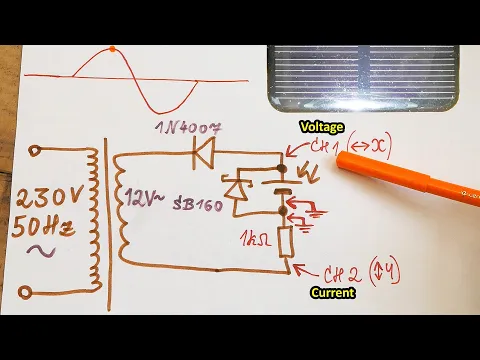 1N4007
Voltage
CH1 (↔X)
230V
50Hz
~
12V~
SB160
1kΩ
CH2 (↕Y)
Current